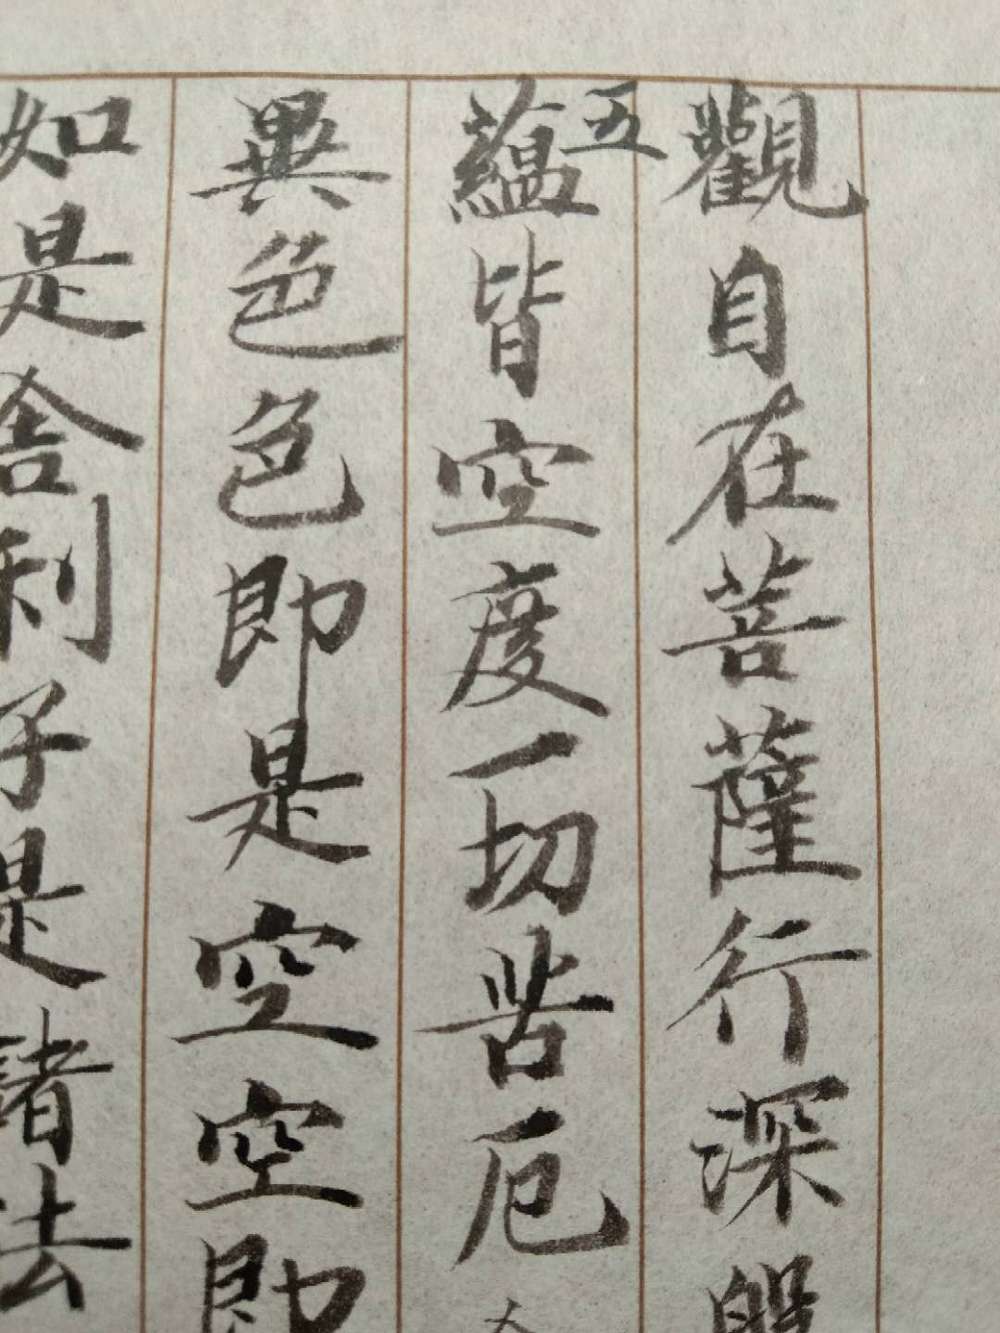 觀自在菩薩行深般
五蘊皆空度一切苦厄
異色色即是空空即
如是舍利子是諸法